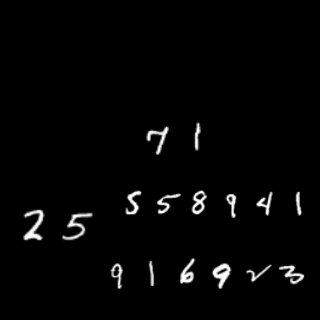 71
558941
25
916923